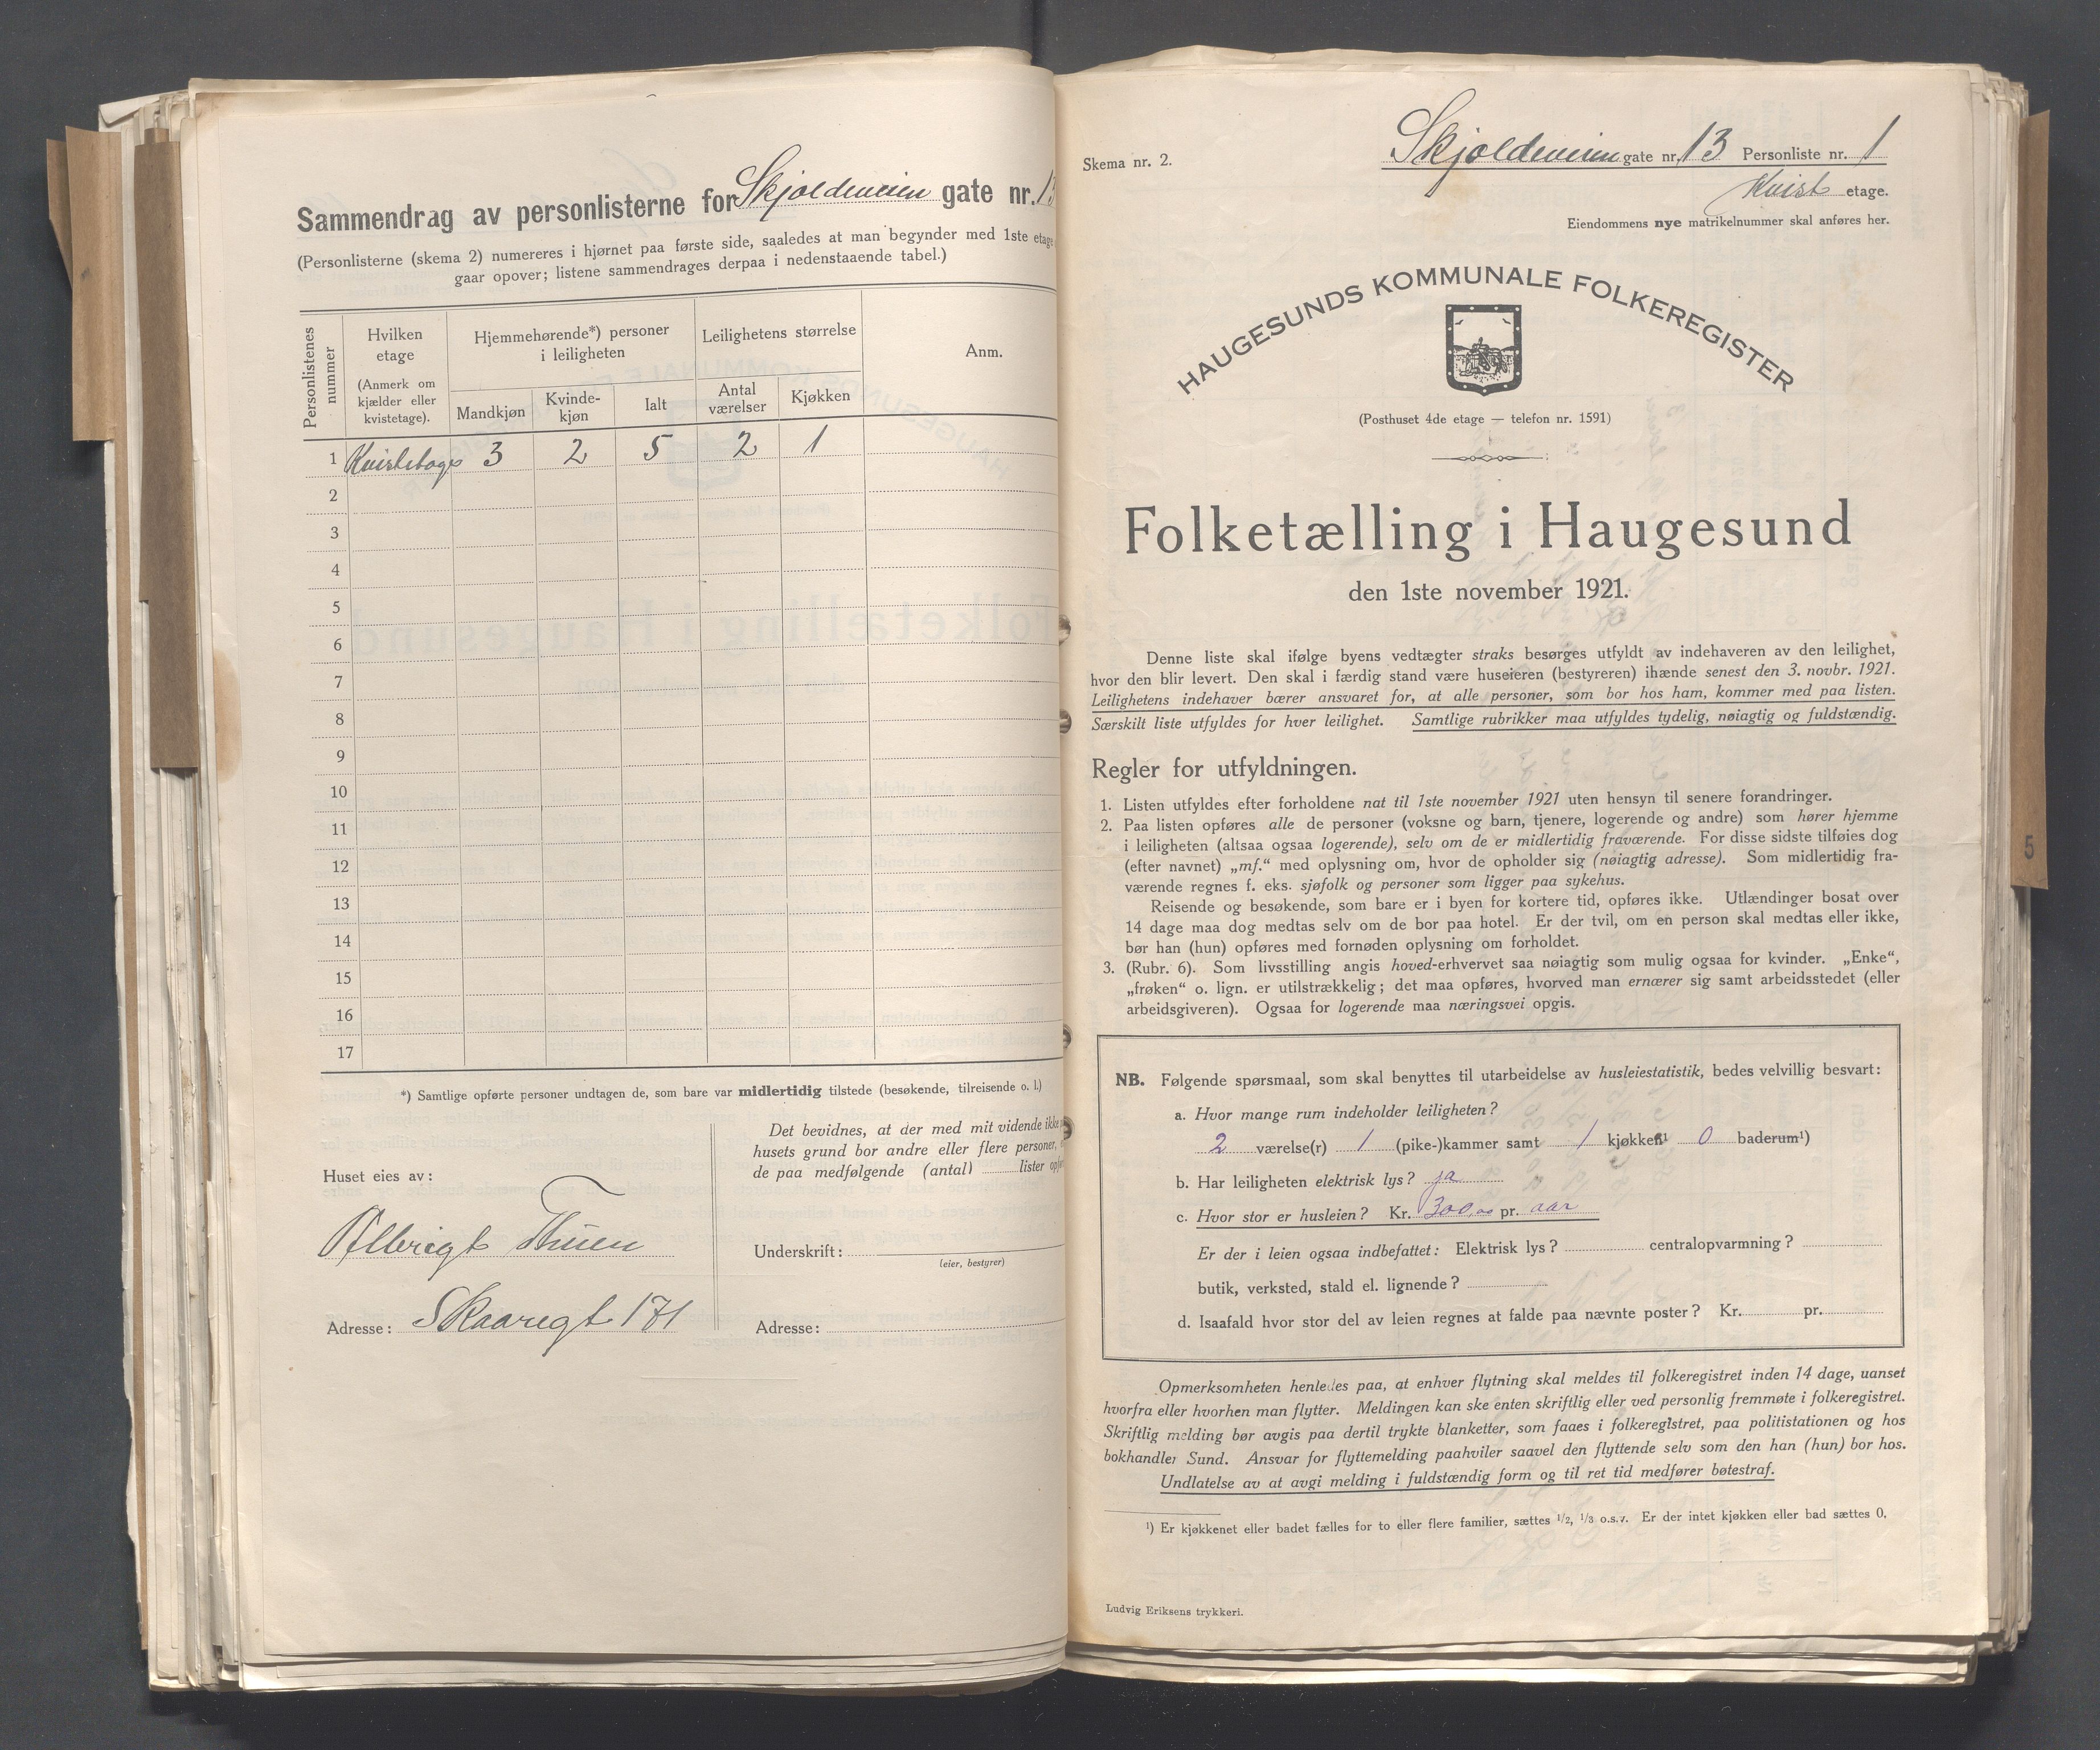 Sammendrag av personlisterne for Skjoldeveien gate nr. 13
(Personlisterne (skema 2) numereres i hjørnet paa første side, saaledes at man begynder med 1ste etage
gaar opover; listene sammendrages derpaa i nedenstaaende tabel.)
Personlistenes nummer
Hvilken etage
(Anmerk om kjælder eller kvistetage).
Hjemmehørende*) personer i leiligheten
Leilighetens størrelse
Anm.
Mandkjøn
Kvinde-kjøn
Ialt
Antal værelser
Kjøkken
1 Kvistetage 3 2 5 2 1
2
3
4
5
6
7
8
9
10
11
12
13
14
15
16
17
*) Samtlige opførte personer undtagen de, som bare var midlertidig tilstede (besøkende, tilreisende o. l.)
Huset eies av:
Albrigt Thuen
Adresse: Skaaregt 171
Det bevidnes, at der med mit vidende ikke
husets grund bor andre eller flere personer,
de paa medfølgende (antal) lister
Underskrift:
(eier, bestyrer)
Adresse:
Skema nr. 2.
Skjoldeveien gate nr. 13 Personliste nr. 1
Kvist etage.
Eiendommens nye matrikelnummer skal anføres her.
HAUGESUNDS KOMMUNALE FOLKEREGISTER
(Posthuset 4de etage — telefon nr. 1591)
Folketælling i Haugesund
den 1ste november 1921.
Denne liste skal ifølge byens vedtægter straks besørges utfyldt av indehaveren av den leilighet,
hvor den blir levert. Den skal i færdig stand være huseieren (bestyreren) ihænde senest den 3. novbr. 1921.
Leilighetens indehaver bærer ansvaret for, at alle personer, som bor hos ham, kommer med paa listen.
Særskilt liste utfyldes for hver leilighet. Samtlige rubrikker maa utfyldes tydelig, nøiagtig og fuldstændig.
Regler for utfyldningen.
1. Listen utfyldes efter forholdene nat til 1ste november 1921 uten hensyn til senere forandringer.
2. Paa listen opføres alle de personer (voksne og barn, tjenere, logerende og andre) som hører hjemme
i leiligheten (altsaa ogsaa logerende), selv om de er midlertidig fraværende. For disse sidste tilføies dog
(efter navnet) „mf.“ med oplysning om, hvor de opholder sig (nøiagtig adresse). Som midlertidig fra-
værende regnes f. eks. sjøfolk og personer som ligger paa sykehus.
Reisende og besøkende, som bare er i byen for kortere tid, opføres ikke. Utlændinger bosat over
14 dage maa dog medtas selv om de bor paa hotel. Er der tvil, om en person skal medtas eller ikke,
bør han (hun) opføres med fornøden oplysning om forholdet.
3. (Rubr. 6). Som livsstilling angis hoved-erhvervet saa nøiagtig som mulig ogsaa for kvinder. „Enke“,
„frøken“ o. lign. er utilstrækkelig; det maa opføres, hvorved man ernærer sig samt arbeidsstedet (eller
arbeidsgiveren). Ogsaa for logerende maa næringsvei opgis.
NB. Følgende spørsmaal, som skal benyttes til utarbeidelse av husleiestatistik, bedes velvillig besvart:
a. Hvor mange rum indeholder leiligheten?
2 værelse(r) 1 (pike-)kammer samt 1 kjøkken¹ 0 baderum¹)
b. Har leiligheten elektrisk lys? ja
c. Hvor stor er husleien? Kr. 300,00 pr. aar
Er der i leien ogsaa indbefattet: Elektrisk lys? centralopvarmning?
butik, verksted, stald el. lignende?
d. Isaafald hvor stor del av leien regnes at falde paa nævnte poster? Kr. pr.
Opmerksomheten henledes paa, at enhver flytning skal meldes til folkeregistret inden 14 dage, uanset
hvorfra eller hvorhen man flytter. Meldingen kan ske enten skriftlig eller ved personlig fremmøte i folkeregistret.
Skriftlig melding bør avgis paa dertil trykte blanketter, som faaes i folkeregistret, paa politistationen og hos
bokhandler Sund. Ansvar for flyttemelding paahviler saavel den flyttende selv som den han (hun) bor hos.
Undlatelse av at avgi melding i fuldstændig form og til ret tid medfører bøtestraf.
¹) Er kjøkkenet eller badet fælles for to eller flere familier, sættes 1/2, 1/3 o.s.v. Er der intet kjøkken eller bad sættes 0.
Ludvig Eriksens trykkeri.
5